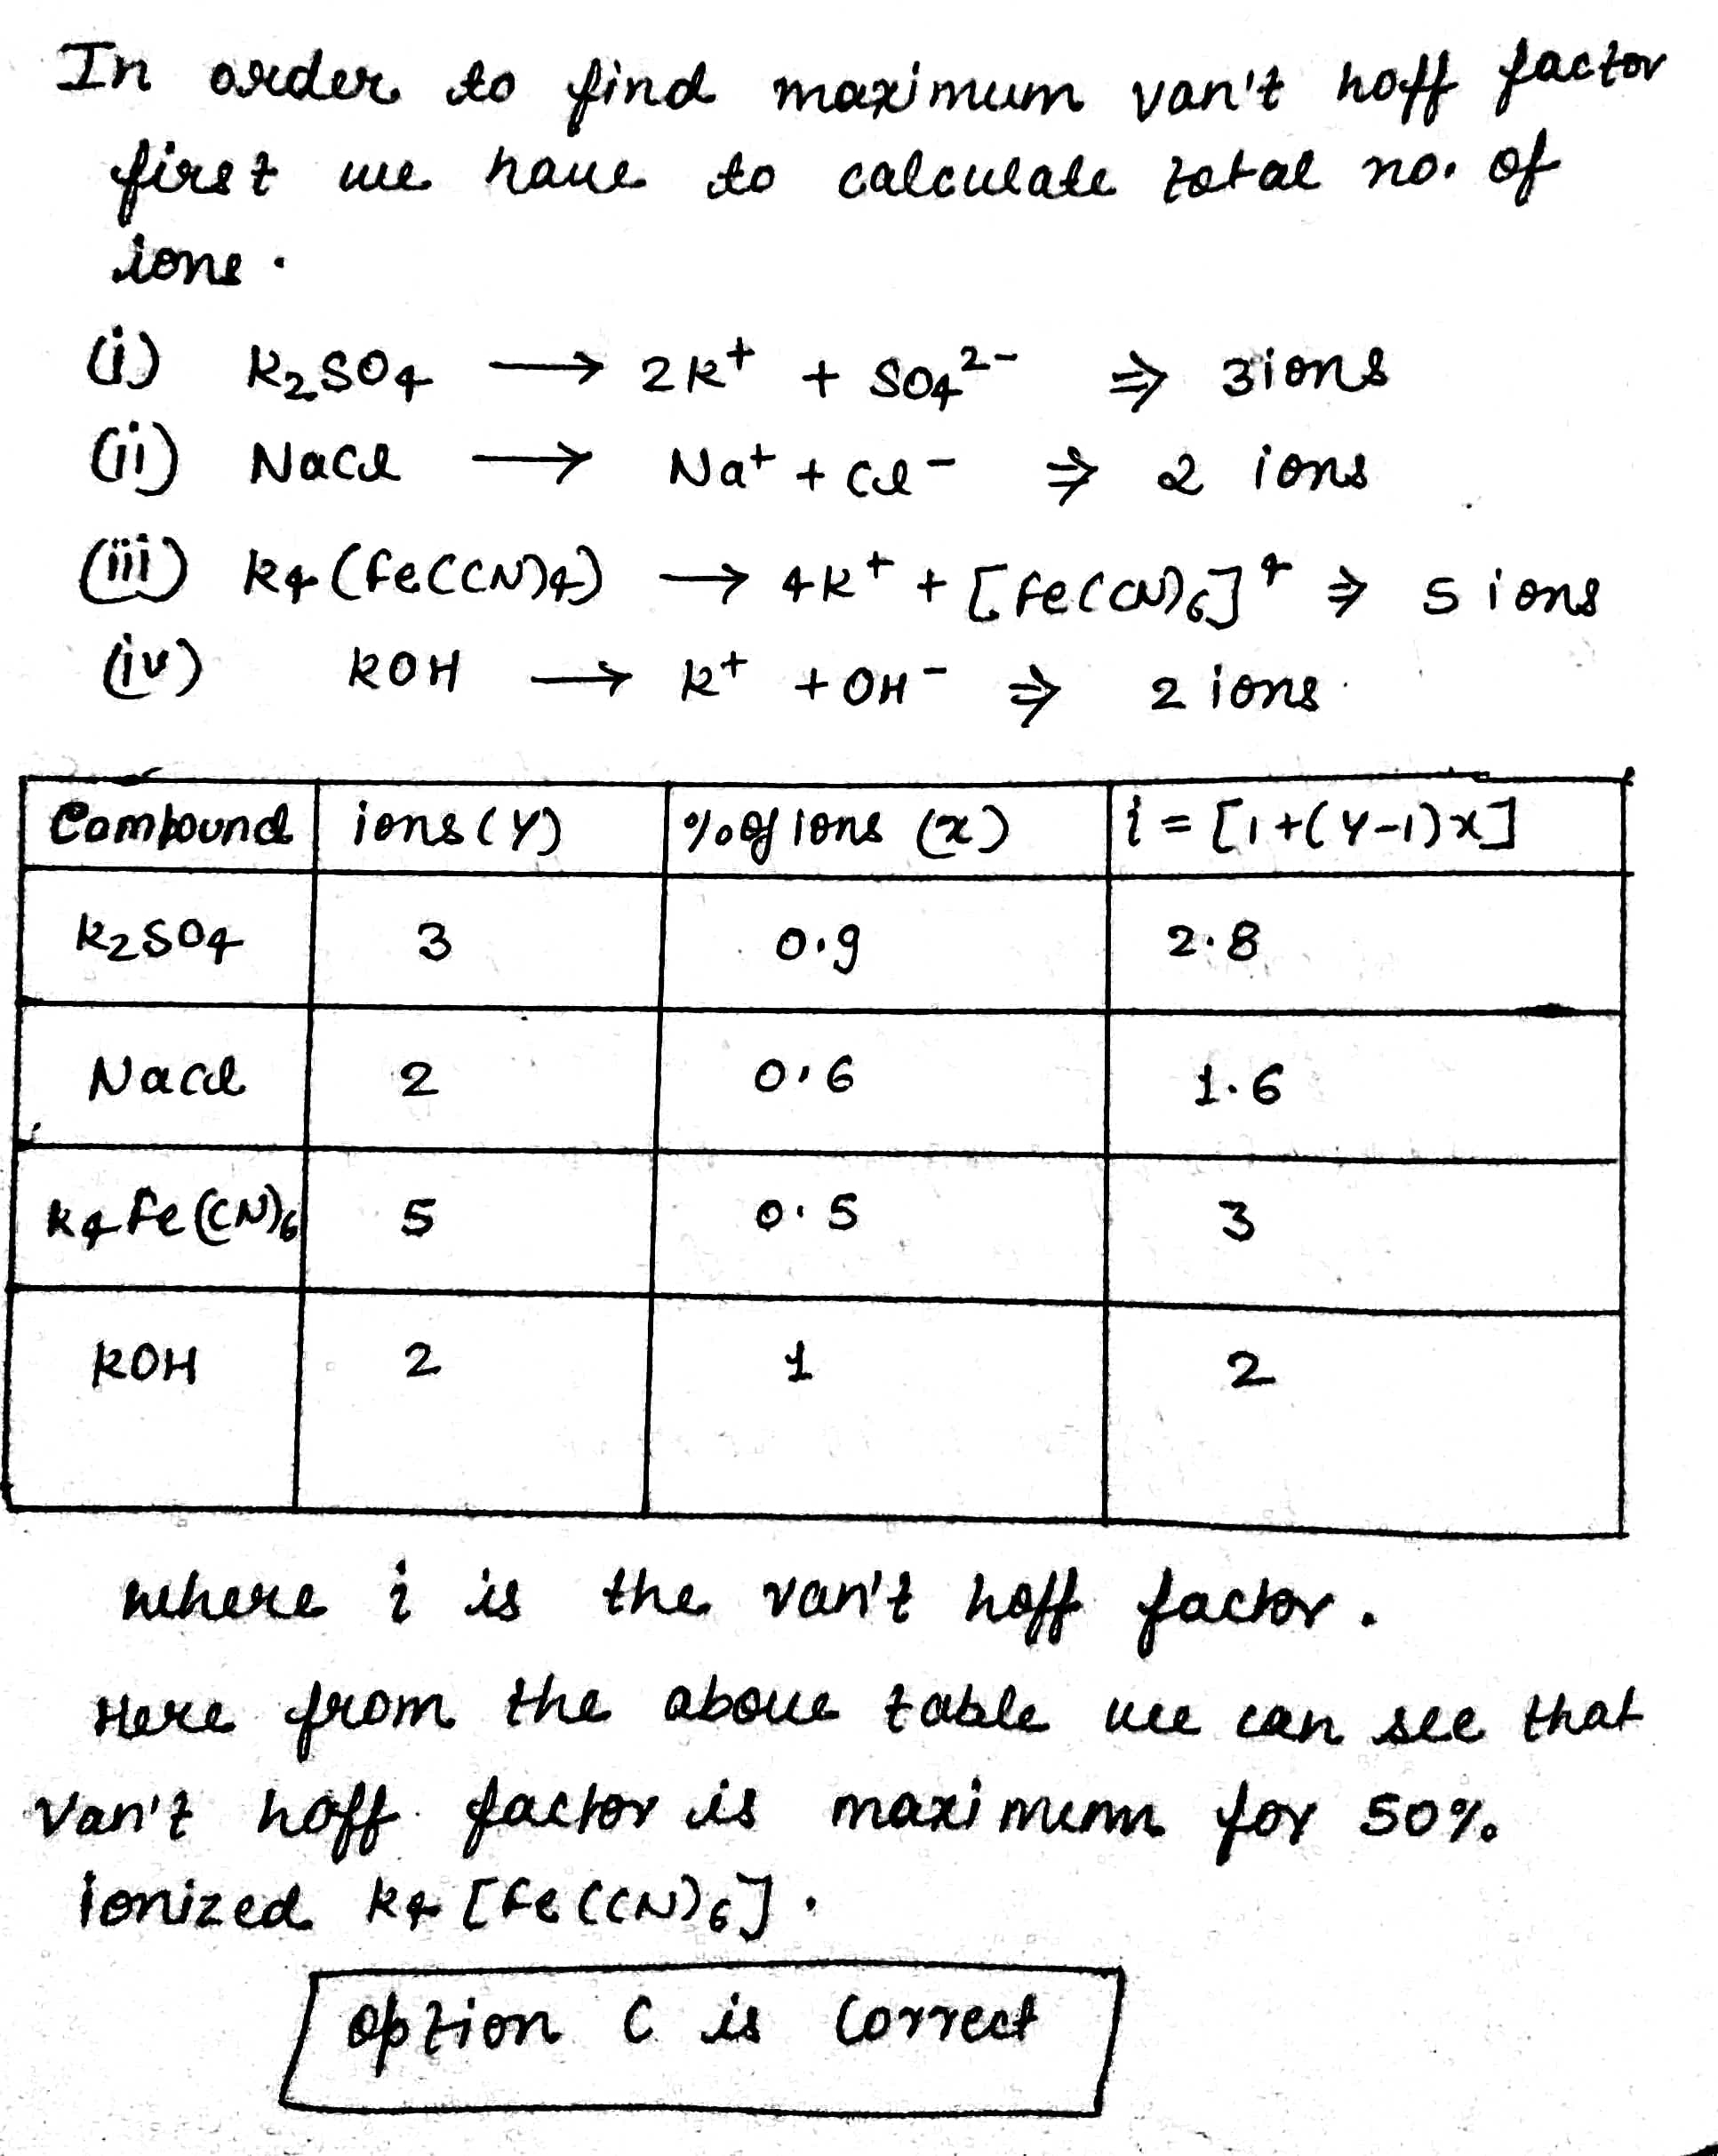 In order to find maximum van't hoff factor
first we have to calculate total no. of
ions.
(i) K₂SO₄ → 2K⁺ + SO₄²⁻ ⇒ 3 ions
(ii) NaCl → Na⁺ + Cl⁻ ⇒ 2 ions
(iii) K₄(Fe(CN)₄) → 4K⁺ + [Fe(CN)₆]⁴ ⇒ 5 ions
(iv) KOH → K⁺ + OH⁻ ⇒ 2 ions
Compound ions (Y) % of ions (x) i = [1+(Y-1)x]
K₂SO₄ 3 0.9 2.8
NaCl 2 0.6 1.6
K₄Fe(CN)₆ 5 0.5 3
KOH 2 1 2
where i is the van't hoff factor.
Here from the above table we can see that
Van't hoff factor is maximum for 50%
ionized K₄[Fe(CN)₆].
option C is correct